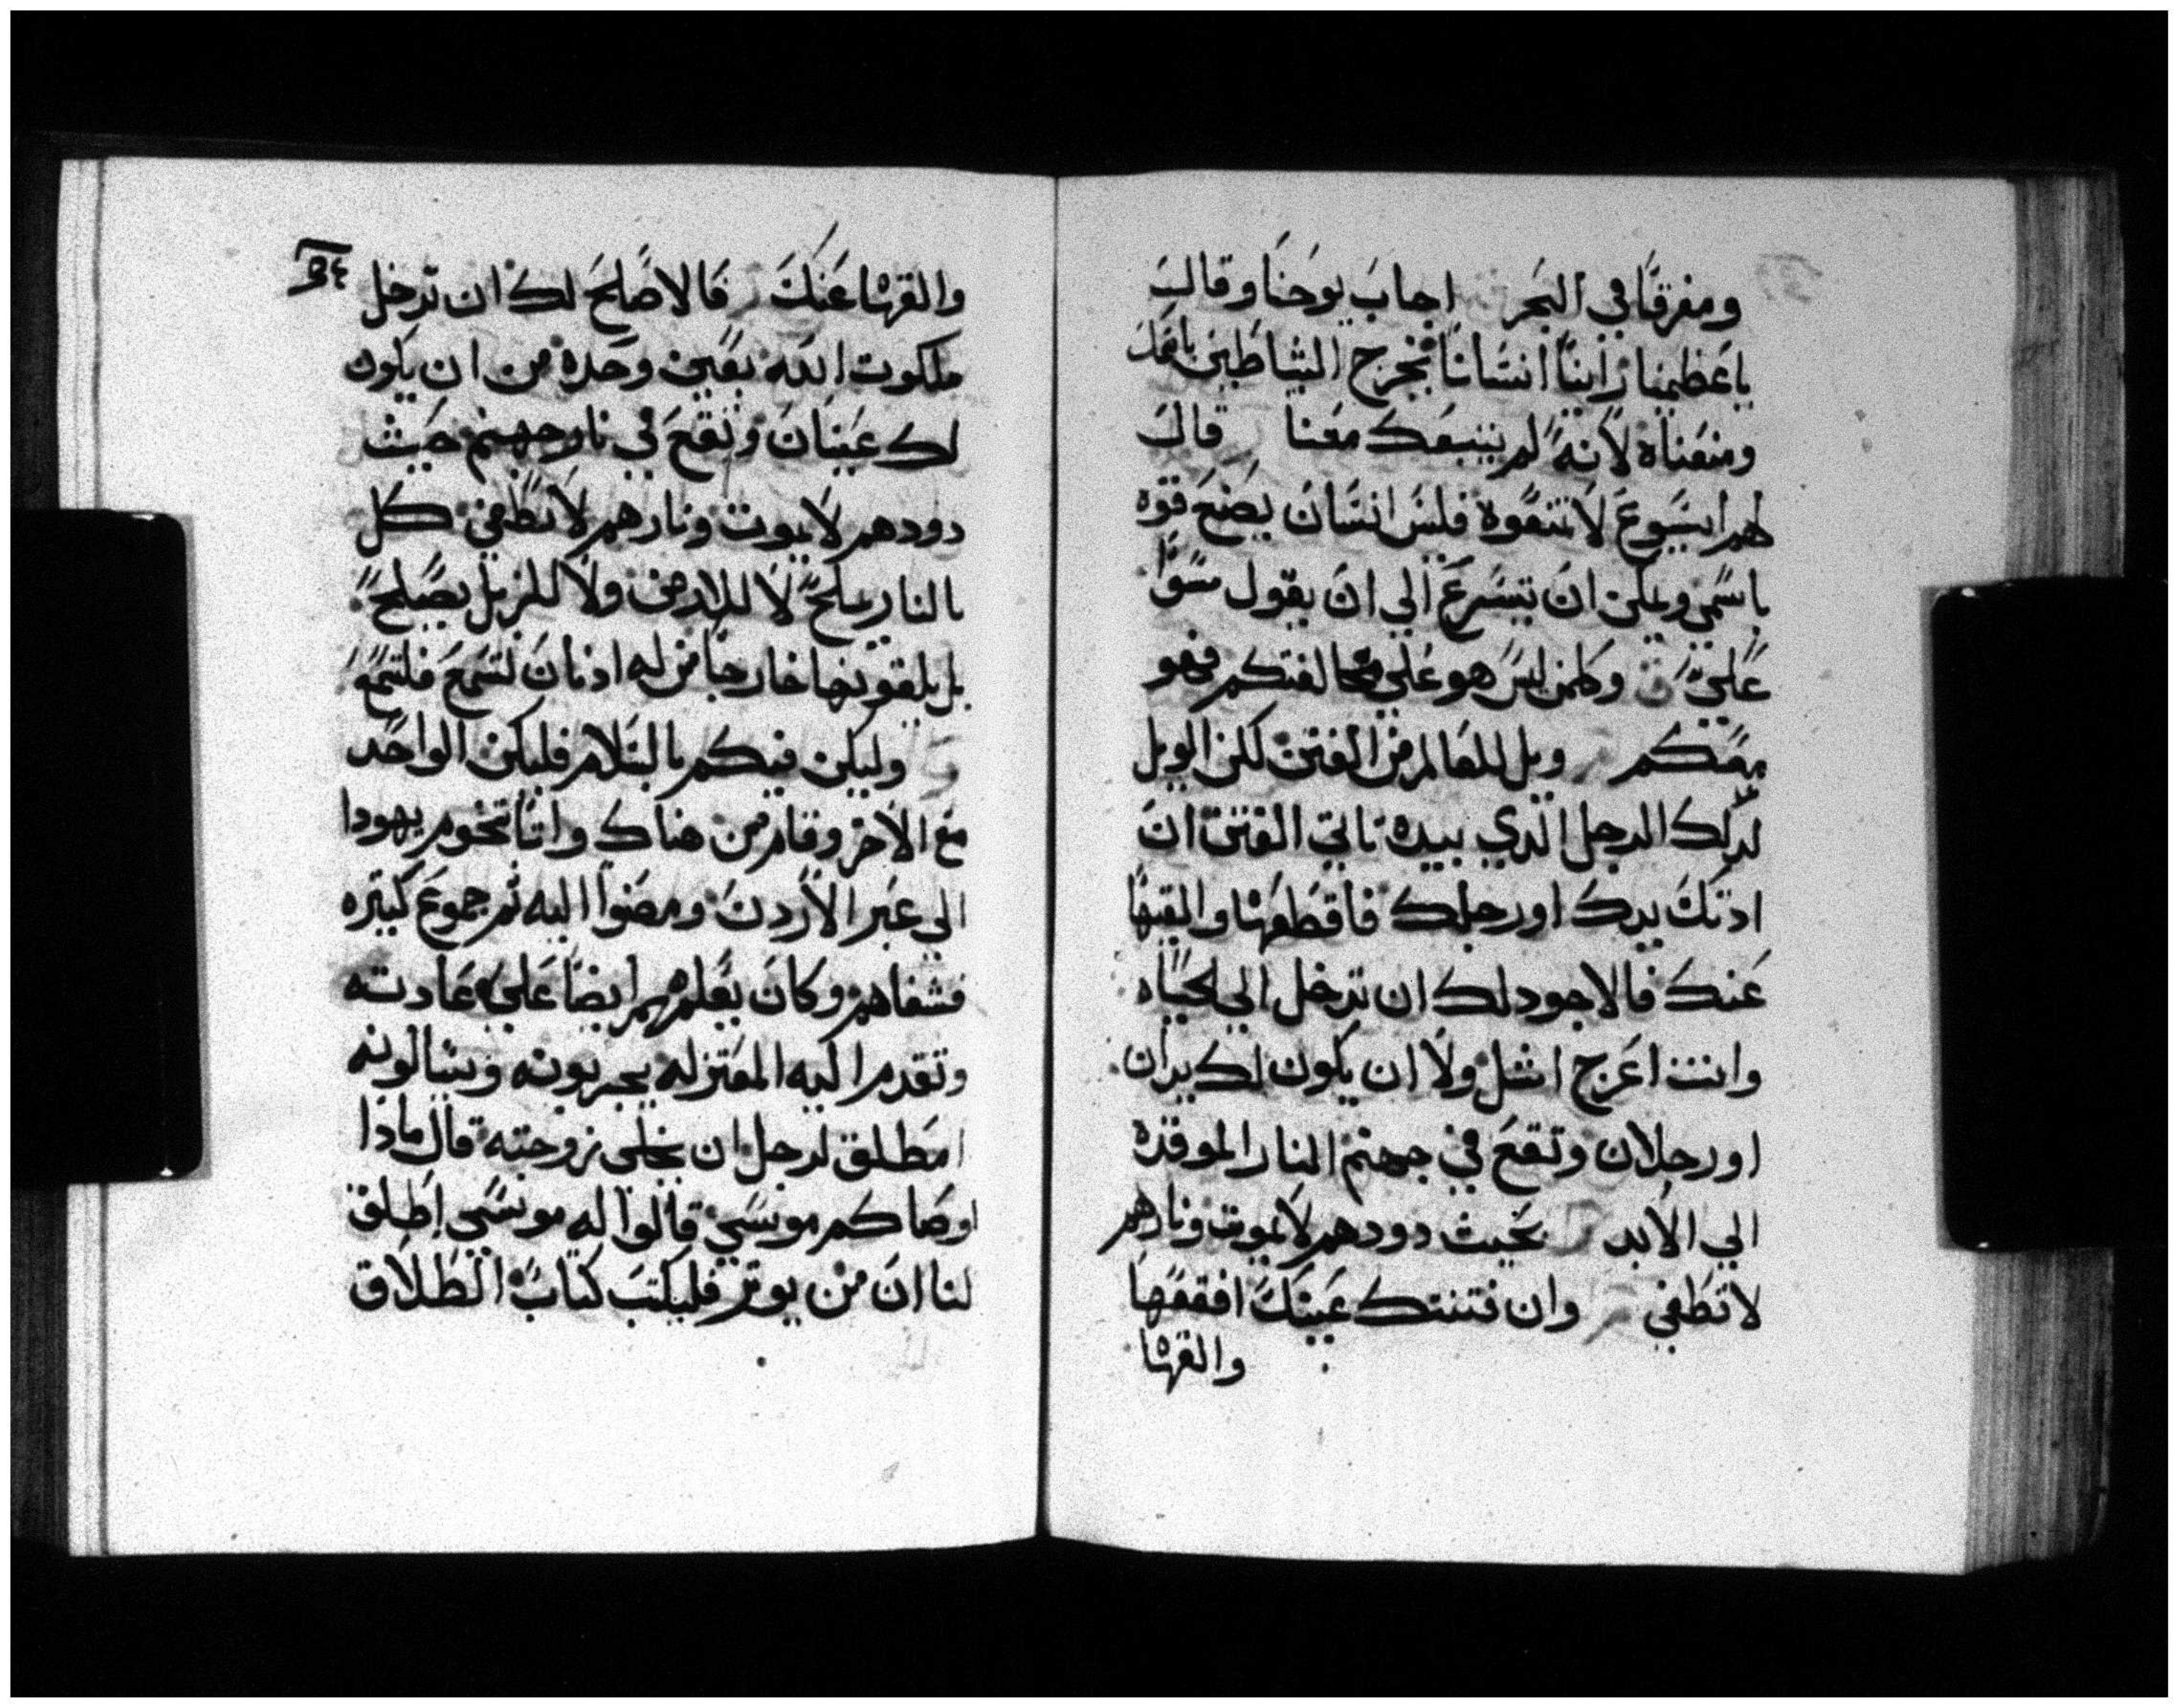 ومغرقًا في البحر اجاب يوحنا وقال
ياعظيمنا راينا انسانًا يخرج الشياطين باسمك
ومنعناه لانه لم يتبعك معنا قال
لهم ايسوع لا تمنعوه فليس انسان يصنع قوه
باسمي ويمكن ان يتسرع الي ان يقول سوًا
علي وكلمن ليس هو علي مخالفتكم فهو
معكم ويل للعالم من الفتن لكن الويل
لدلك الرجل الدي بيده تاتي الفتن ان
ادتك يدك او رجلك فاقطعها والقيها
عنك فالاجود لك ان تدخل الي الحياه
وانت اعرج اشل ولا ان يكون لك يدان
او رجلان وتقع في جهنم النار الموقده
الي الابد بحيث دودهم لا يموت ونارهم
لا تطفي وان فتنتك عينك افقعها
والقها
والقها عنك فالاصلح لك ان تدخل
ملكوت الله بعين وحده من ان يكون
لك عينان وتقع في نار جهنم حيث
دودهم لا يموت ونارهم لا تطفي كل
بالنار يملح لا للارض ولا للزبل يصلح
بل يلقونها خارجًا من له ادنان لتسمع فلتسمع
وليكن فيكم بالسلام فليكن الواحد
مع الاخر وقام من هناك واتا تخوم يهودا
الي عبر الاردن ومضوا اليه ثم جموع كثيره
فشفاهم وكان يعلمهم ايضًا علي عادته
وتقدم اليه المعتزله يجربونه ويسالونه
امطلق لرجل ان يخلي زوجته قال مادا
اوصاكم موسي قالوا له موسي اطلق
لنا ان من يوثر فليكتب كتاب الطلاق